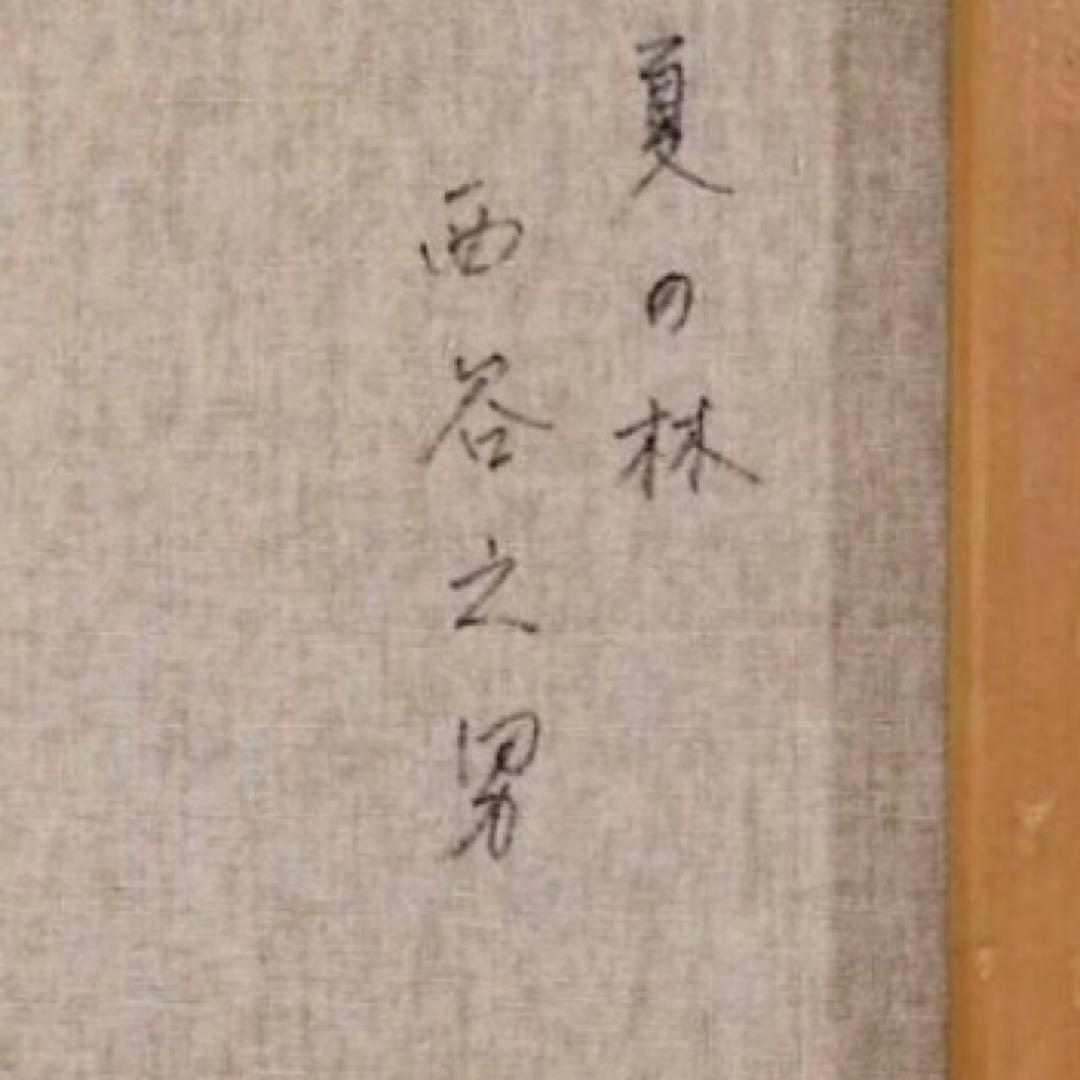 夏の林
西谷之男